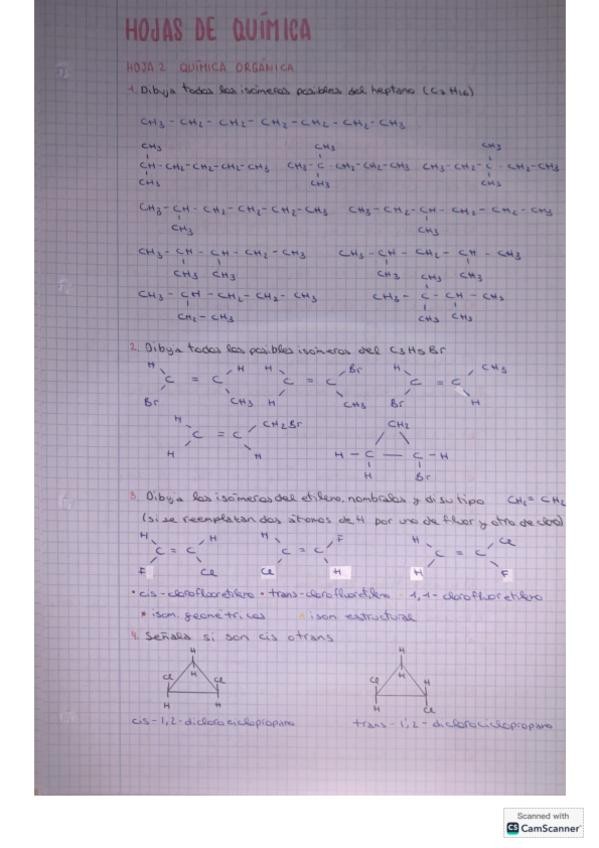 HOJAS DE QUÍMICA
HOJA 2 QUÍMICA ORGÁNICA
1. Dibuja todos los isómeros posibles del heptano (C7H16)
CH3 - CH2 - CH2 - CH2 - CH2 - CH2 - CH3
CH3 CH3 CH3
CH-CH2-CH2-CH2-CH3 CH3-C-CH2-CH2-CH3 CH3-CH2-C-CH2-CH3
CH3 CH3 CH3
CH3-CH-CH2-CH2-CH2-CH3 CH3-CH2-CH-CH2-CH2-CH3
CH3 CH3
CH3-CH-CH-CH2-CH3 CH3-CH-CH2-CH-CH3
CH3 CH3 CH3 CH3 CH3
CH3-CH-CH2-CH2-CH3 CH3-C-CH-CH3
CH2-CH3 CH3 CH3
2. Dibuja todos los posibles isómeros del C3H5Br
H H H Br H CH3
C = C C = C C = C
Br CH3 H CH3 Br H
H CH2Br CH2
C = C H-C-C-H
H H H Br
3. Dibuja los isómeros del etileno, nómbralos y di su tipo CH2=CH2
(si se reemplazan dos átomos de H por uno de fluor y otro de cloro)
H H H F H Cl
C = C C = C C = C
F Cl Cl H H F
• cis-clorofluoretileno • trans-clorofluoretileno 1,1-clorofluoretileno
* isom. geométricos isom estructural
4. Señala si son cis o trans
H H
Cl H Cl Cl H H
H H H Cl
cis-1,2-diclorociclopropano trans-1,2-diclorociclopropano
Scanned with
CS CamScanner